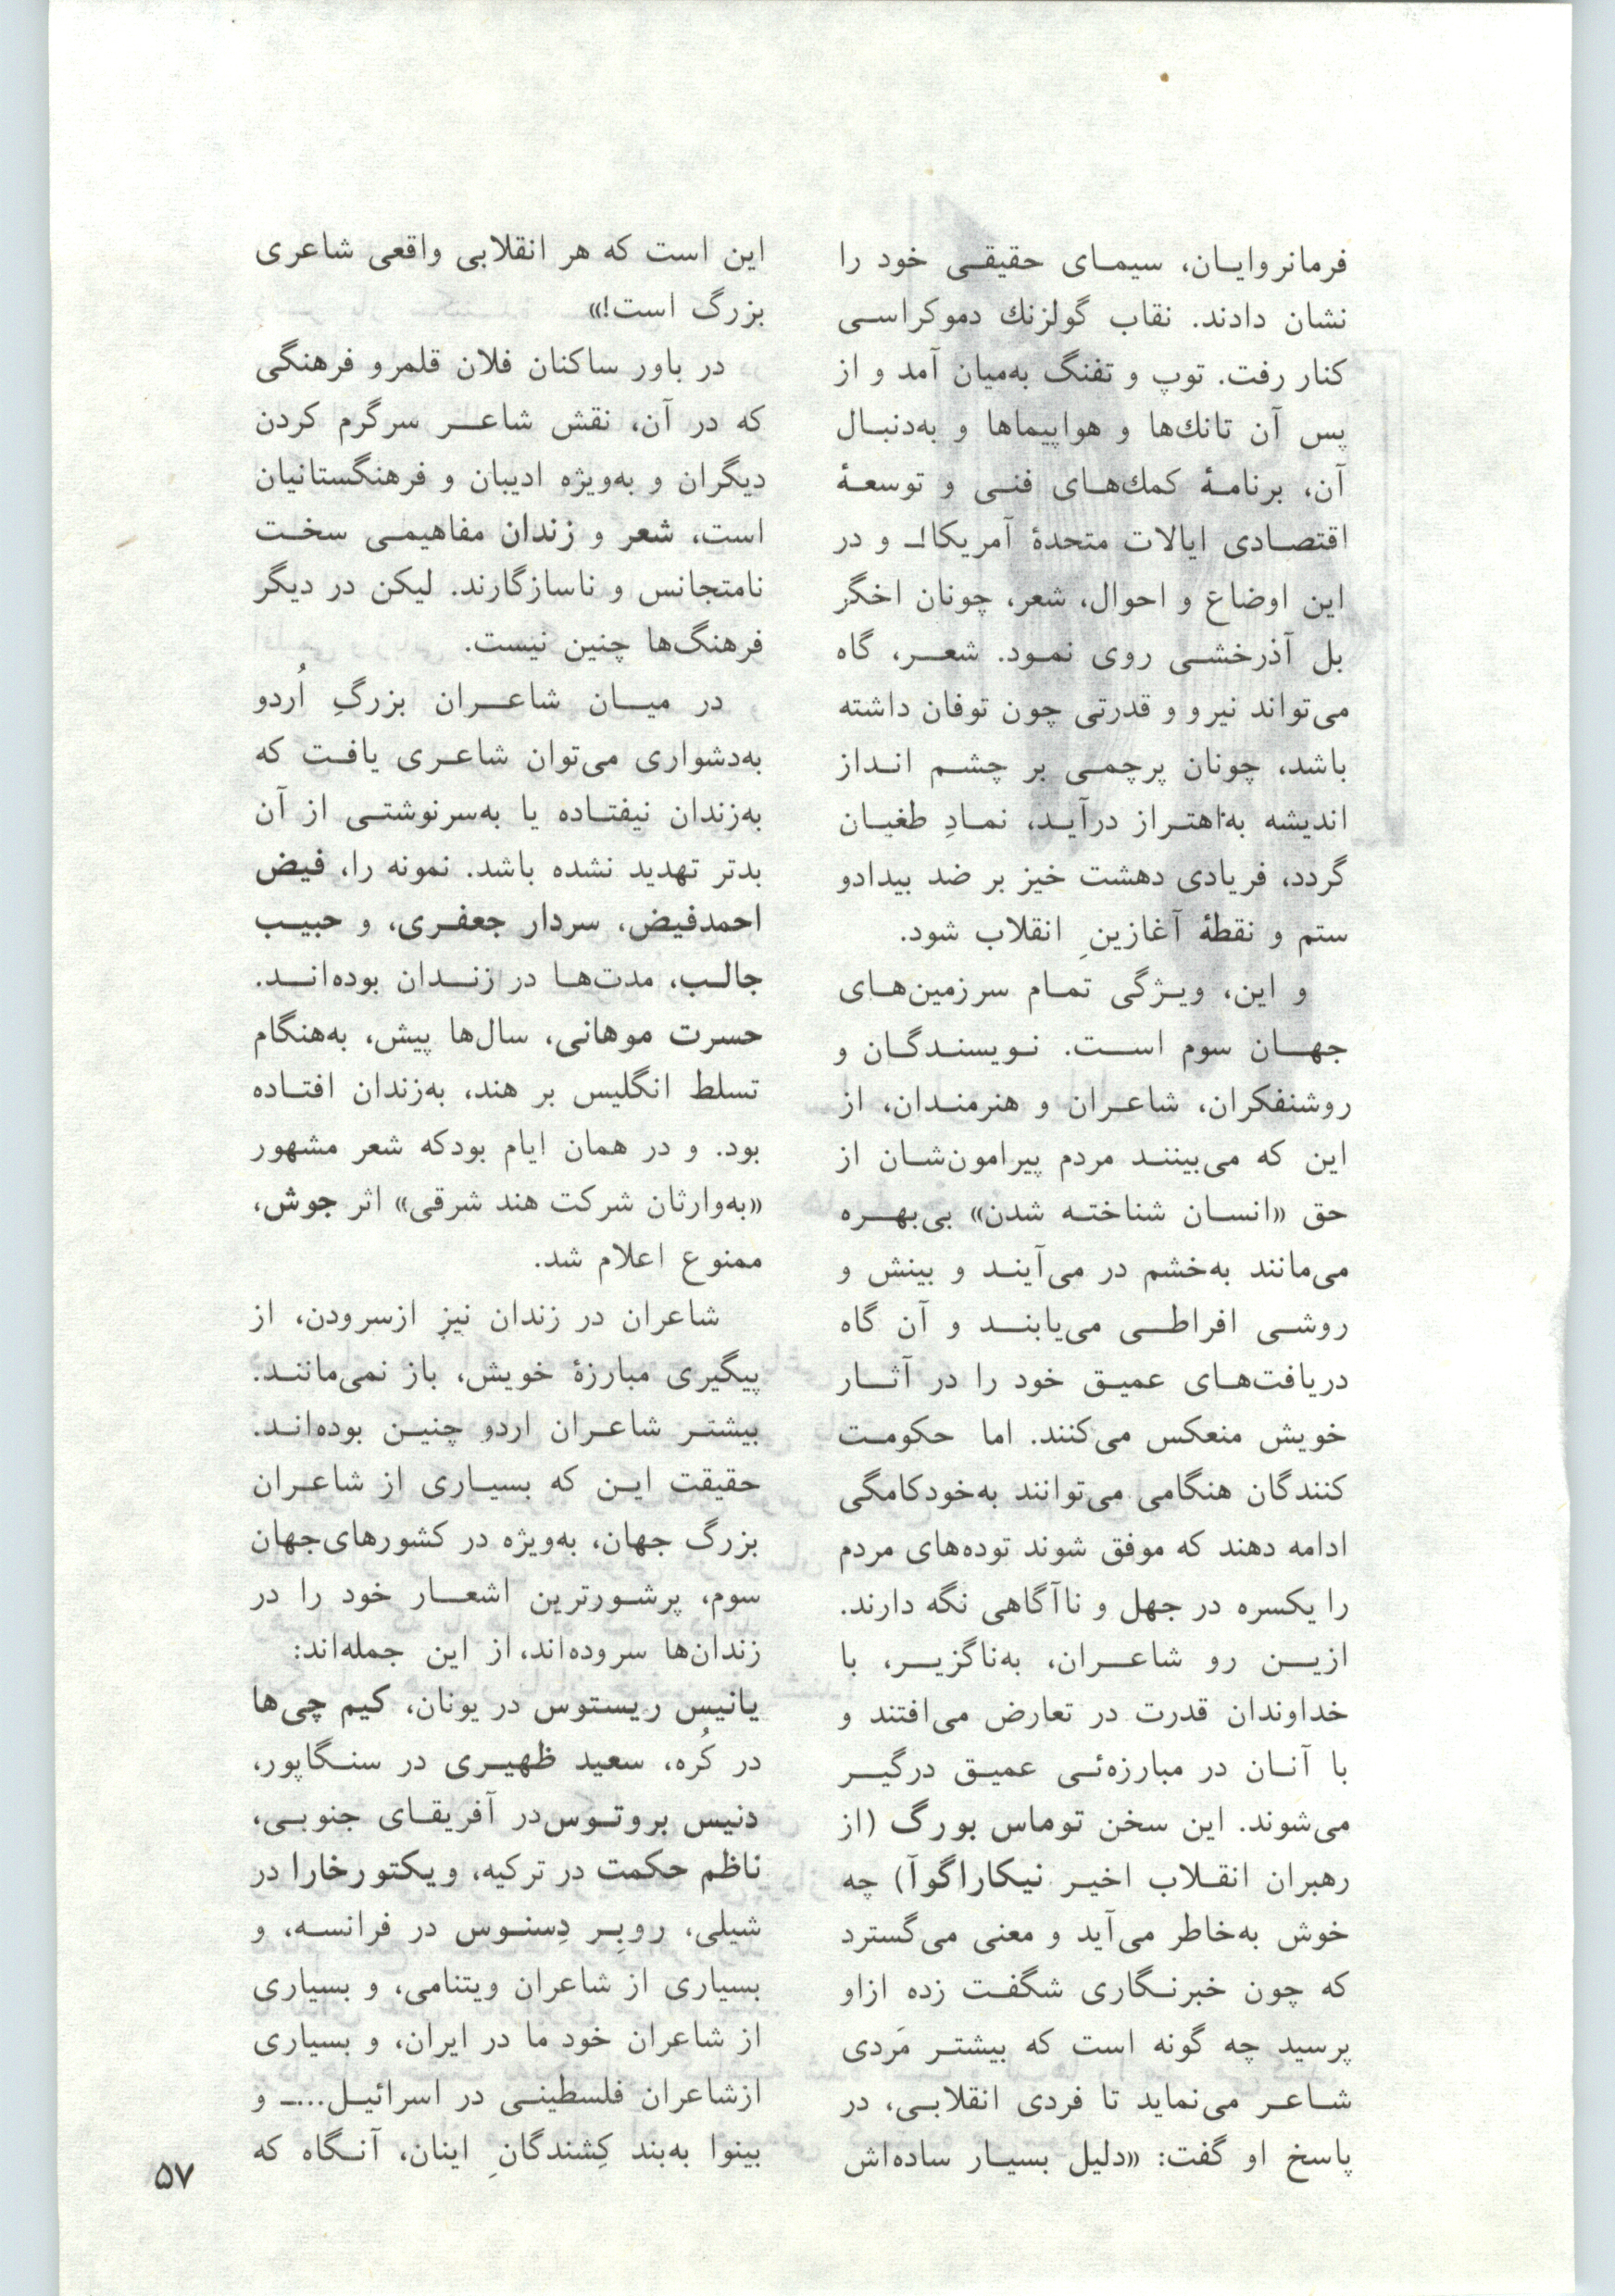 فرمانروایان، سیمای حقیقی خود را
نشان دادند. نقاب گولزنك دموکراسی
کنار رفت. توپ و تفنگ به‌میان آمد و از
پس آن تانك‌ها و هواپیماها و به‌دنبال
آن، برنامهٔ کمك‌های فنی و توسعهٔ
اقتصادی ایالات متحدهٔ آمریکا!ـ و در
این اوضاع و احوال، شعر، چونان اخگر
بل آذرخشی روی نمود. شعر، گاه
می‌تواند نیرو و قدرتی چون توفان داشته
باشد، چونان پرچمی بر چشم انداز
اندیشه به‌اهتراز درآید، نمادِ طغیان
گردد، فریادی دهشت خیز بر ضد بیدادو
ستم و نقطهٔ آغازینِ انقلاب شود.
و این، ویژگی تمام سرزمین‌های
جهان سوم است. نویسندگان و
روشنفکران، شاعران و هنرمندان، از
این که می‌بینند مردم پیرامون‌شان از
حق «انسان شناخته شدن» بی‌بهره
می‌مانند به‌خشم در می‌آیند و بینش و
روشی افراطی می‌یابند و آن گاه
دریافت‌های عمیق خود را در آثار
خویش منعکس می‌کنند. اما حکومت
کنندگان هنگامی می‌توانند به‌خودکامگی
ادامه دهند که موفق شوند توده‌های مردم
را یکسره در جهل و ناآگاهی نگه دارند.
ازین رو شاعران، به‌ناگزیر، با
خداوندان قدرت در تعارض می‌افتند و
با آنان در مبارزه‌ئی عمیق درگیر
می‌شوند. این سخن توماس بورگ (از
رهبران انقلاب اخیر نیکاراگوآ) چه
خوش به‌خاطر می‌آید و معنی می‌گسترد
که چون خبرنگاری شگفت زده ازاو
پرسید چه گونه است که بیشتر مَردی
شاعر می‌نماید تا فردی انقلابی، در
پاسخ او گفت: «دلیل بسیار ساده‌اش
این است که هر انقلابی واقعی شاعری
بزرگ است!»
در باور ساکنان فلان قلمرو فرهنگی
که در آن، نقش شاعر سرگرم کردن
دیگران و به‌ویژه ادیبان و فرهنگستانیان
است، شعر و زندان مفاهیمی سخت
نامتجانس و ناسازگارند. لیکن در دیگر
فرهنگ‌ها چنین نیست.
در میان شاعران بزرگِ اُردو
به‌دشواری می‌توان شاعری یافت که
به‌زندان نیفتاده یا به‌سرنوشتی از آن
بدتر تهدید نشده باشد. نمونه را، فیض
احمدفیض، سردار جعفری، و حبیب
جالب، مدت‌ها در زندان بوده‌اند.
حسرت موهانی، سال‌ها پیش، به‌هنگام
تسلط انگلیس بر هند، به‌زندان افتاده
بود. و در همان ایام بودکه شعر مشهور
«به‌وارثان شرکت هند شرقی» اثر جوش،
ممنوع اعلام شد.
شاعران در زندان نیز ازسرودن، از
پیگیری مبارزهٔ خویش، باز نمی‌مانند.
بیشتر شاعران اردو چنین بوده‌اند.
حقیقت این که بسیاری از شاعران
بزرگ جهان، به‌ویژه در کشورهای‌جهان
سوم، پرشورترین اشعار خود را در
زندان‌ها سروده‌اند، از این جمله‌اند:
یانیس ریستوس در یونان، کیم چی‌ها
در کُره، سعید ظهیری در سنگاپور،
دنیس بروتوس‌در آفریقای جنوبی،
ناظم حکمت در ترکیه، ویکتورخارا در
شیلی، روبِر دِسنوس در فرانسه، و
بسیاری از شاعران ویتنامی، و بسیاری
از شاعران خود ما در ایران، و بسیاری
ازشاعران فلسطینی در اسرائیل...ـ و
بینوا به‌بند کِشندگانِ اینان، آنگاه که
۵۷